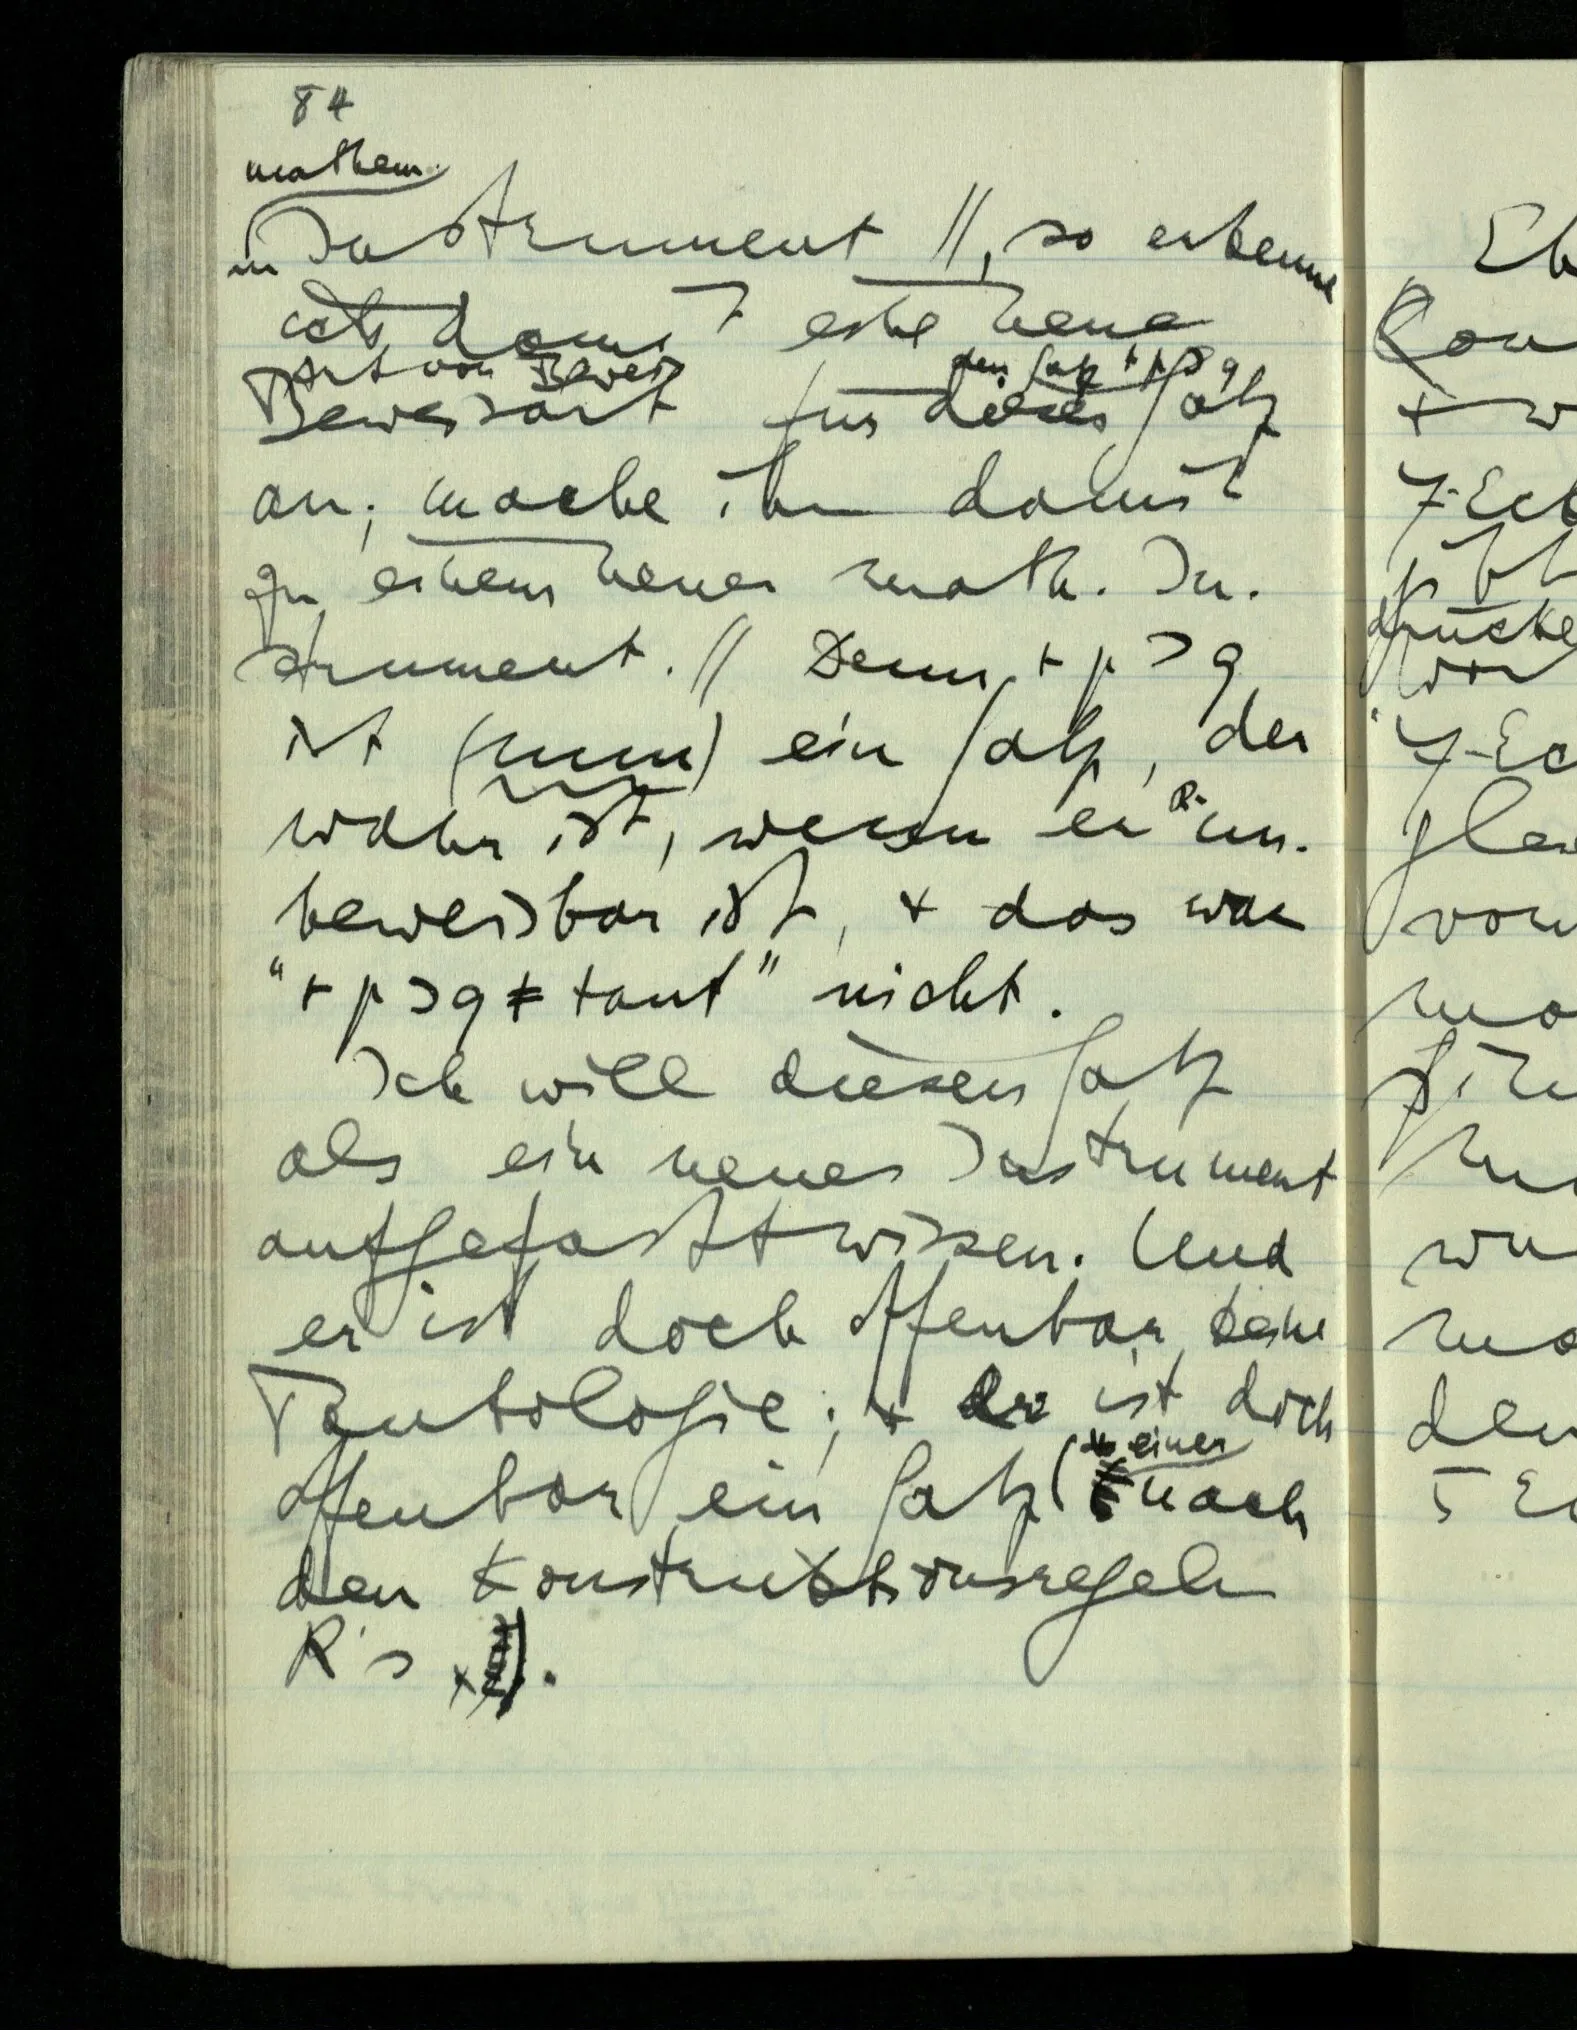 84
mathem.
Instrument //, so erkenne
ich damit eine neue
Art von Beweis
den Satz ⊢p⊃q
Beweisart für diesen Satz
an; mache ihn damit
zu einem neuen math. In-
strument. // Denn ⊢p⊃q
ist (nun) ein Satz, der
wahr ist, wenn er R-un-
beweisbar ist, + das war
"⊢p⊃q ≠ taut" nicht.
Ich will diesen Satz
als ein neues Instrument
aufgefaßt wissen. Und
er ist doch offenbar keine
Tautologie; + er ist doch
einer
offenbar ein Satz ( nach
den Konstruktionsregeln
R's ).
Eb
Kon
+ w
7-Eck
drücke
7-Ec
glei
von
ma
wu
ma
den
5 Ec